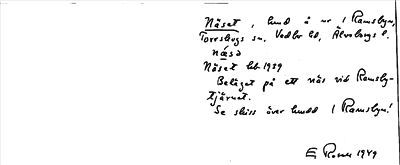 Näset, hmd å nr 1 Ramsbyn,
Torrskogs sn. Vedbo hd, Älvsborgs l.
næsə
Näset hb. 1939
Beläget på ett näs vid Ramsby-
tjärnet.
Se skiss över hmdd 1 Ramsbyn!
E Rosen 1949